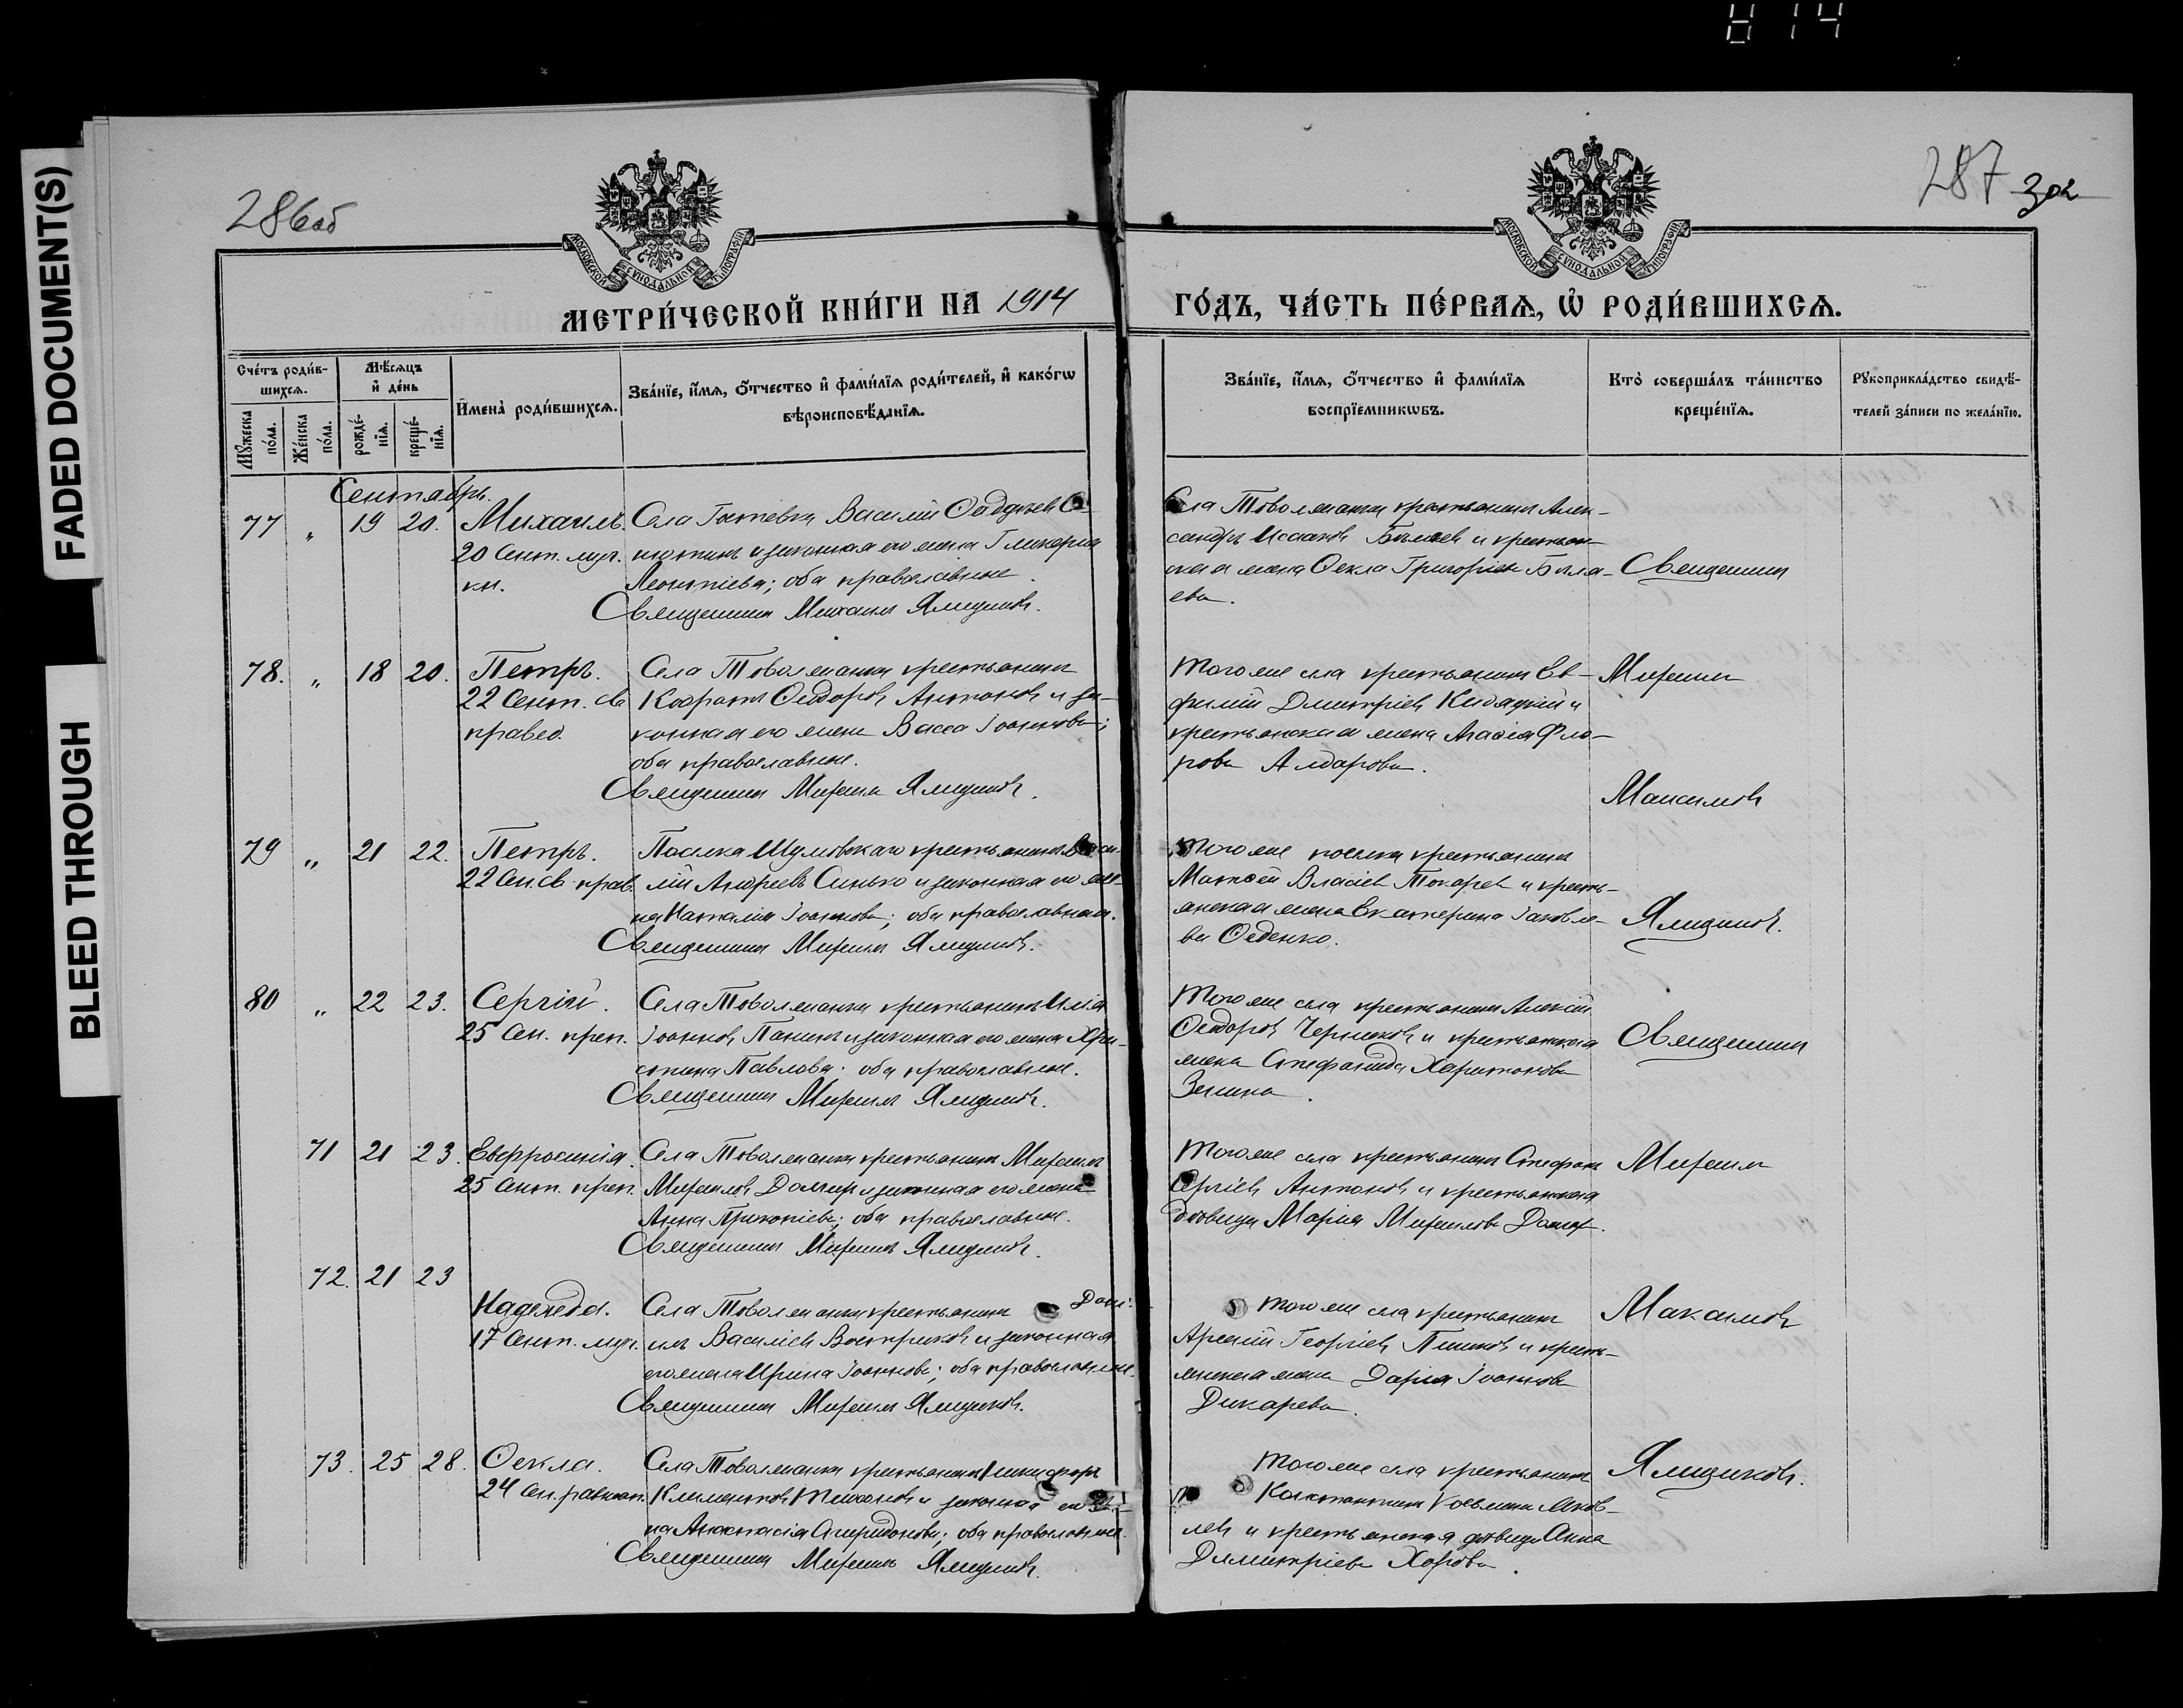 814
FADED DOCUMENT(S)
BLEED THROUGH
286об
287
МОСКОВСКОЙ СѴНОДАЛЬНОЙ ТИПОГРАФІИ
МОСКОВСКОЙ СѴНОДАЛЬНОЙ ТИПОГРАФІИ
МЕТРИ́ЧЕСКОЙ КНИ́ГИ НА 1914
ГО́ДЪ, ЧА́СТЬ ПЕ́РВАѦ, Ѡ҆ РОДИ́ВШИХСѦ.
Сче́тъ роди́в-
шихсѧ.
Мꙋ́жеска
по́ла.
Же́нска
по́ла.
Мѣ́сѧцъ
и҆ де́нь
рожде́-
нїѧ.
креще́-
нїѧ.
И҆мена̀ роди́вшихсѧ.
Зва́нїе, и҆́мѧ, ѻ҆́тчество и҆ фами́лїѧ роди́телей, и҆ како́гѡ
вѣроисповѣ́данїѧ.
Зва́нїе, и҆́мѧ, ѻ҆́тчество и҆ фами́лїѧ
воспрїе́мникѡвъ.
Кто̀ соверша́лъ та́инство
креще́нїѧ.
Рꙋкоприкла́дство свидѣ́-
телей за́писи по жела́нїю.
Сентябрь.
77 „ 19 20. Михаилъ. Села Василій
20 Сент. муч. законная его жена Гликерія
кн. Леонтіева; оба православные.
Священникъ Михаилъ Ямщиковъ.
Села Товолжанки крестьянинъ Алек-
сандръ Исааковъ Бѣляевъ и крестьян-
ская жена Ѳекла Григоріева Бѣля-
ева.
Священникъ
78. „ 18 20. Петръ. Села Товолжанки крестьянинъ
22 Сент. св. Кодратъ Ѳеодоровъ Антоновъ и за-
правед. конная его жена Васса Іоаннова;
оба православные.
Священникъ Михаилъ Ямщиковъ.
Того же села крестьянинъ Ев-
фимій Димитріевъ и
крестьянская жена Агафія Фло-
рова Алдарова.
Михаилъ
Максимовъ
79 „ 21 22. Петръ. Поселка Шумовскаго крестьянинъ Васи-
22 Сен. св. прав. лій Андреевъ Синько и законная его же-
на Наталія Іоаннова; оба православные.
Священникъ Михаилъ Ямщиковъ.
Того же поселка крестьянинъ
Матѳей Власіевъ Токаревъ и кресть-
янская жена Екатерина Іаковле-
ва Ѳеденко.
Ямщиковъ.
80 „ 22 23. Сергій. Села Товолжанки крестьянинъ Илія
25 Сен. преп. Іоанновъ Панинъ и законная его жена Хри-
стина Павлова; оба православные.
Священникъ Михаилъ Ямщиковъ.
Того же села крестьянинъ Алексій
Ѳеодоровъ и крестьянская
жена Стефанида Харитонова
Зенина.
Священникъ
71 21 23. Евфросинія. Села Товолжанки крестьянинъ Михаилъ
25 Сент. преп. Михаиловъ и законная его жена
Анна Прокопіева; оба православные.
Священникъ Михаилъ Ямщиковъ.
Того же села крестьянинъ Стефанъ
Сергіевъ Антоновъ и крестьянская
дѣвица Марія Михаилова
Михаилъ
72. 21 23
Надежда. Села Товолжанки крестьянинъ Дані-
17 Сент. муч. илъ Василіевъ Востриковъ и законная
его жена Ирина Іоаннова; оба православные.
Священникъ Михаилъ Ямщиковъ.
Того же села крестьянинъ
Арсеній Георгіевъ и кресть-
янская жена Дарія Іоаннова
Дикарева.
Максимовъ
73. 25 28. Ѳекла. Села Товолжанки крестьянинъ Никифоръ
24 Сен. равноап. Климентовъ и законная его же-
на Анастасія Спиридонова; оба православные.
Священникъ Михаилъ Ямщиковъ.
Того же села крестьянинъ
Константинъ Косьминъ Яков-
левъ и крестьянская дѣвица Анна
Димитріева
Ямщиковъ.